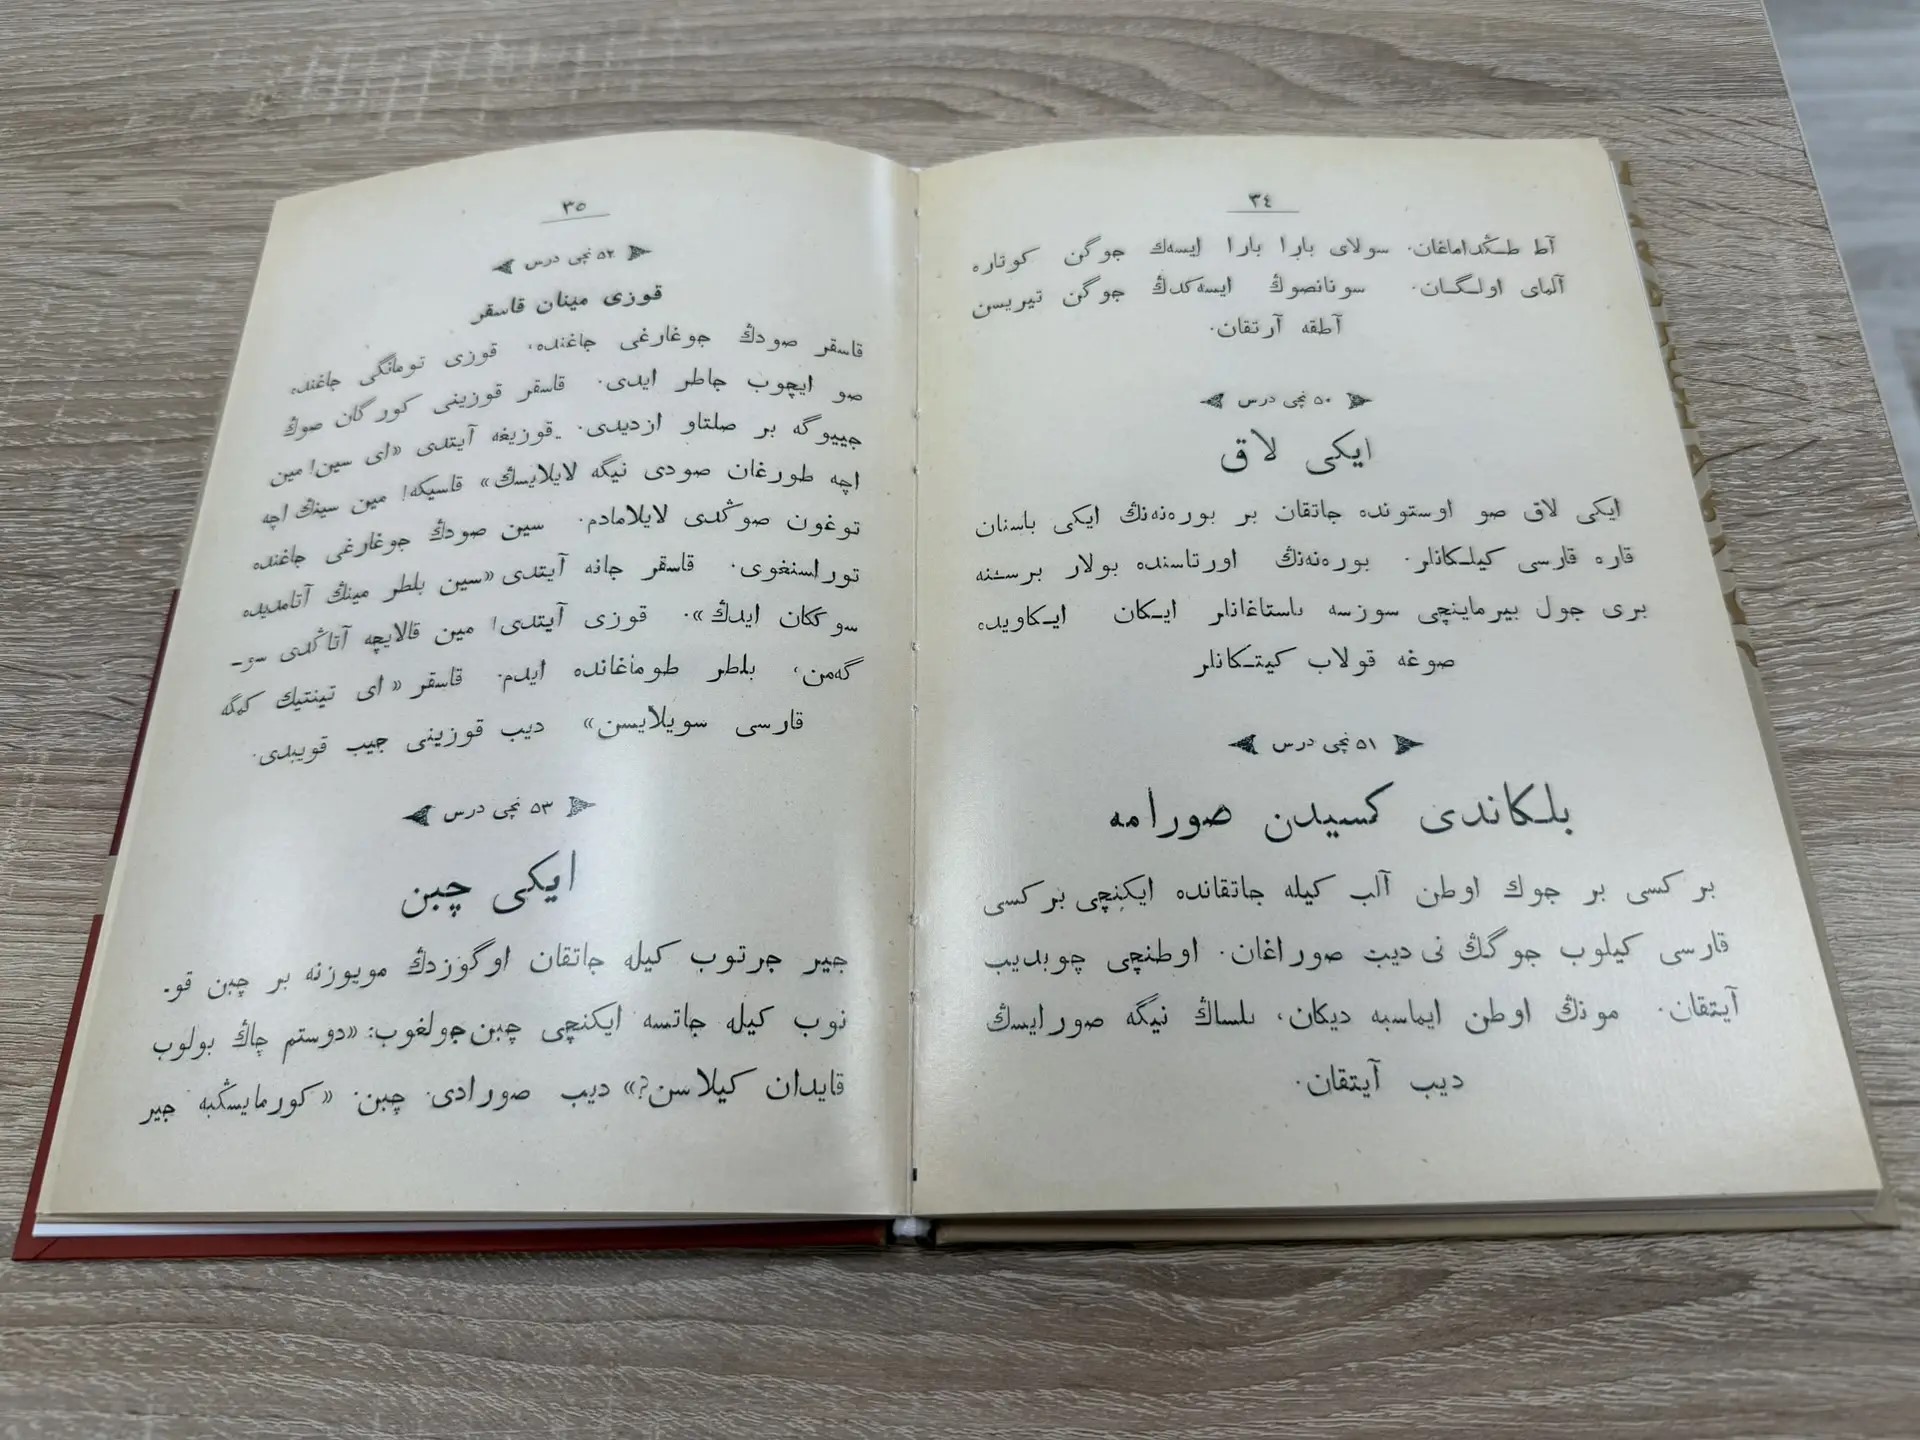 ٣٤
آط طڭداماغان. سولای بارا بارا ایسەك جوگن کوتارە
آلمای اولگان. سونانصوڭ ایسەکدڭ جوگن تیریسن
آطقە آرتقان.
٥٠ نچی درس
ایکی لاق
ایکی لاق صو اوستوندە جاتقان بر بورەنەنڭ ایکی باسنان
قارە قارسی کیلکانلر. بورەنەنڭ اورتاسندە بولار برسنە
بری جول بیرماینچی سوزسە باستاغانلر ایکان ایکاویدە
صوغە قولاب کیتکانلر
٥١ نچی درس
بلکاندی کسیدن صورامە
بر کسی بر جوك اوطن آلب کیلە جاتقاندە ایکنچی بر کسی
قارسی کیلوب جوگڭ نی دیب صوراغان. اوطنچی چوبدیب
آیتقان. مونڭ اوطن ایماسبە دیکان، بلساڭ نیگە صورایسڭ
دیب آیتقان.
٣٥
٥٢ نچی درس
قوزی مینان قاسقر
قاسقر صودڭ جوغارغی جاغندە. قوزی تومانگی جاغندە
صو ایچوب جاطر ایدی. قاسقر قوزینی کورگان صوڭ
جییوگە بر صلتاو ازدیدی. قوزیغە آیتدی «ای سین! مین
اچە طورغان صودی نیگە لایلایسڭ» قاسیکە! مین سینڭ اچە
توغون صوڭدی لایلامادم. سین صودڭ جوغارغی جاغندە
توراسنغوی. قاسقر جانە آیتدی «سین بلطر مینڭ آتامدیدە
سوککان ایدڭ». قوزی آیتدی! مین قالایچە آتاڭدی سو-
گەمن، بلطر طوماغاندە ایدم. قاسقر «ای تینتیك کمگە
قارسی سویلایسن» دیب قوزینی جیب قویبدی.
٥٣ نچی درس
ایکی چبن
جیر جرتوب کیلە جاتقان اوگوزدڭ مویوزنە بر چبن قو-
نوب کیلە جاتسە ایکنچی چبن جولغوب: «دوستم چاڭ بولوب
قایدان کیلاسن؟» دیب صورادی. چبن. «کورمایسڭبە جیر